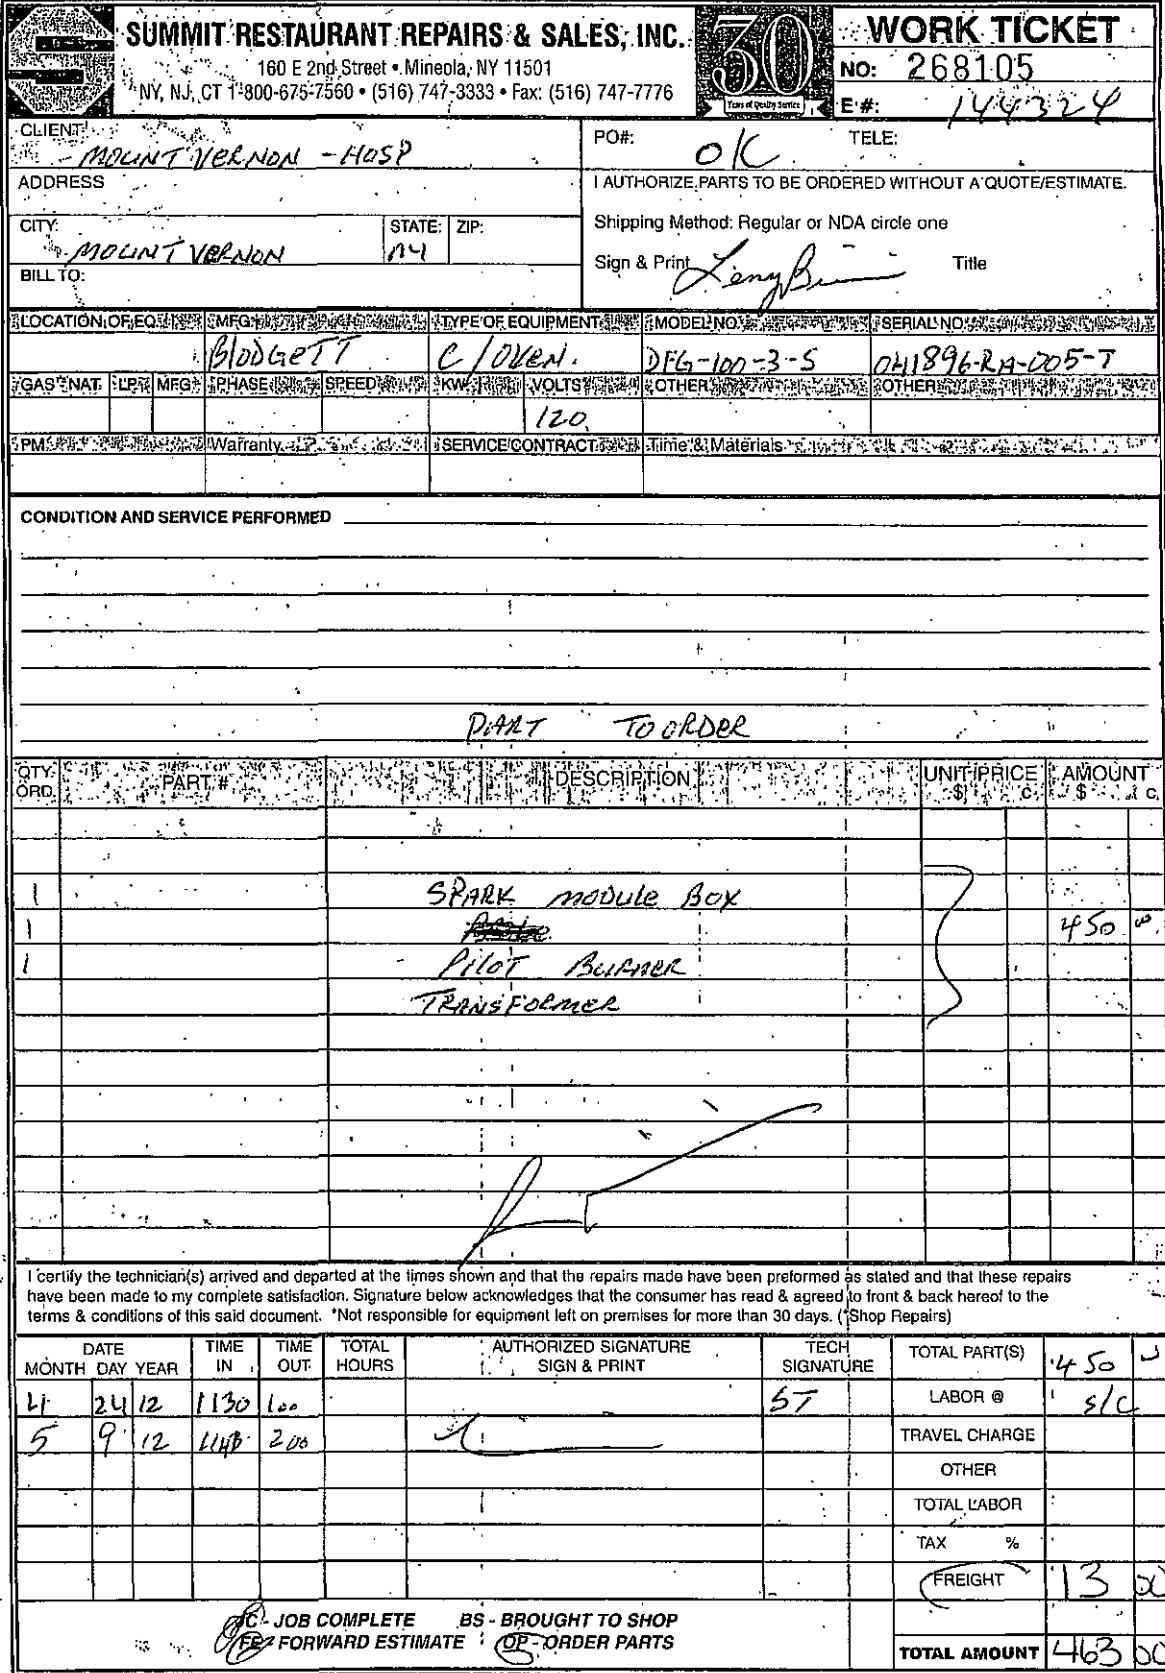 SUMMIT RESTAURANT REPAIRS & SALES, INC.
160 E 2nd Street • Mineola, NY 11501
NY, NJ, CT 1-800-675-7560 • (516) 747-3333 • Fax: (516) 747-7776
30
Years of Quality Service
WORK TICKET
NO: 268105
E#: 144324
CLIENT:
MOUNT VERNON - HOSP
PO#: OK TELE:
ADDRESS
I AUTHORIZE PARTS TO BE ORDERED WITHOUT A QUOTE/ESTIMATE.
CITY: MOUNT VERNON STATE: NY ZIP:
Shipping Method: Regular or NDA circle one
BILL TO:
Sign & Print Title
LOCATION OF EQ. MFG. TYPE OF EQUIPMENT MODEL NO. SERIAL NO.
BlODGETT C/OVEN. DFG-100-3-S 041896-RA-005-T
GAS NAT. LP MFG PHASE SPEED KW VOLTS OTHER OTHER
120
PM Warranty SERVICE CONTRACT Time & Materials
CONDITION AND SERVICE PERFORMED
PART TO ORDER
QTY. ORD. PART # DESCRIPTION UNIT PRICE $ c. AMOUNT $ c.
1 SPARK MODULE BOX
1 450 00
1 - PILOT BURNER
TRANSFORMER
I certify the technician(s) arrived and departed at the times shown and that the repairs made have been preformed as stated and that these repairs
have been made to my complete satisfaction. Signature below acknowledges that the consumer has read & agreed to front & back hereof to the
terms & conditions of this said document. *Not responsible for equipment left on premises for more than 30 days. (*Shop Repairs)
DATE MONTH DAY YEAR TIME IN TIME OUT TOTAL HOURS AUTHORIZED SIGNATURE SIGN & PRINT TECH SIGNATURE TOTAL PART(S) 450
4 24 12 1130 100 ST LABOR @ S/C
5 9 12 200 TRAVEL CHARGE
OTHER
TOTAL LABOR
TAX %
FREIGHT 13 00
JC - JOB COMPLETE BS - BROUGHT TO SHOP
FE - FORWARD ESTIMATE OP - ORDER PARTS
TOTAL AMOUNT 463 00